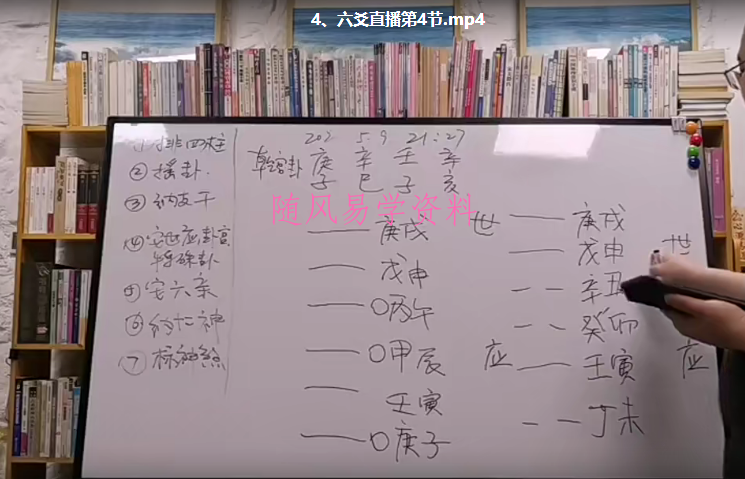 4、六爻直播第4节.mp4
① 排四柱
② 摇卦.
③ 纳支干
④ 安世应卦宫
特殊卦
⑤ 安六亲
⑥ 纳六神
⑦ 标神煞
202 5.9 21:27
乾宫卦 庚 辛 壬 辛
子 巳 子 亥
随风易学资料
庚戌 世 庚戌 世
戊申 戊申
〇丙午 辛丑
〇甲辰 癸卯
壬寅 应 壬寅 应
〇庚子 丁未